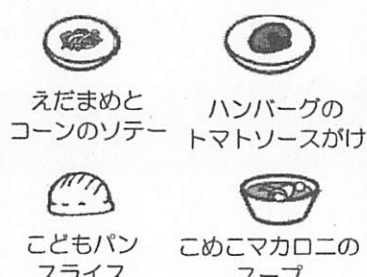 えだまめと
コーンのソテー
ハンバーグの
トマトソースがけ
こどもパン
スライス
こめこマカロニの
スープ